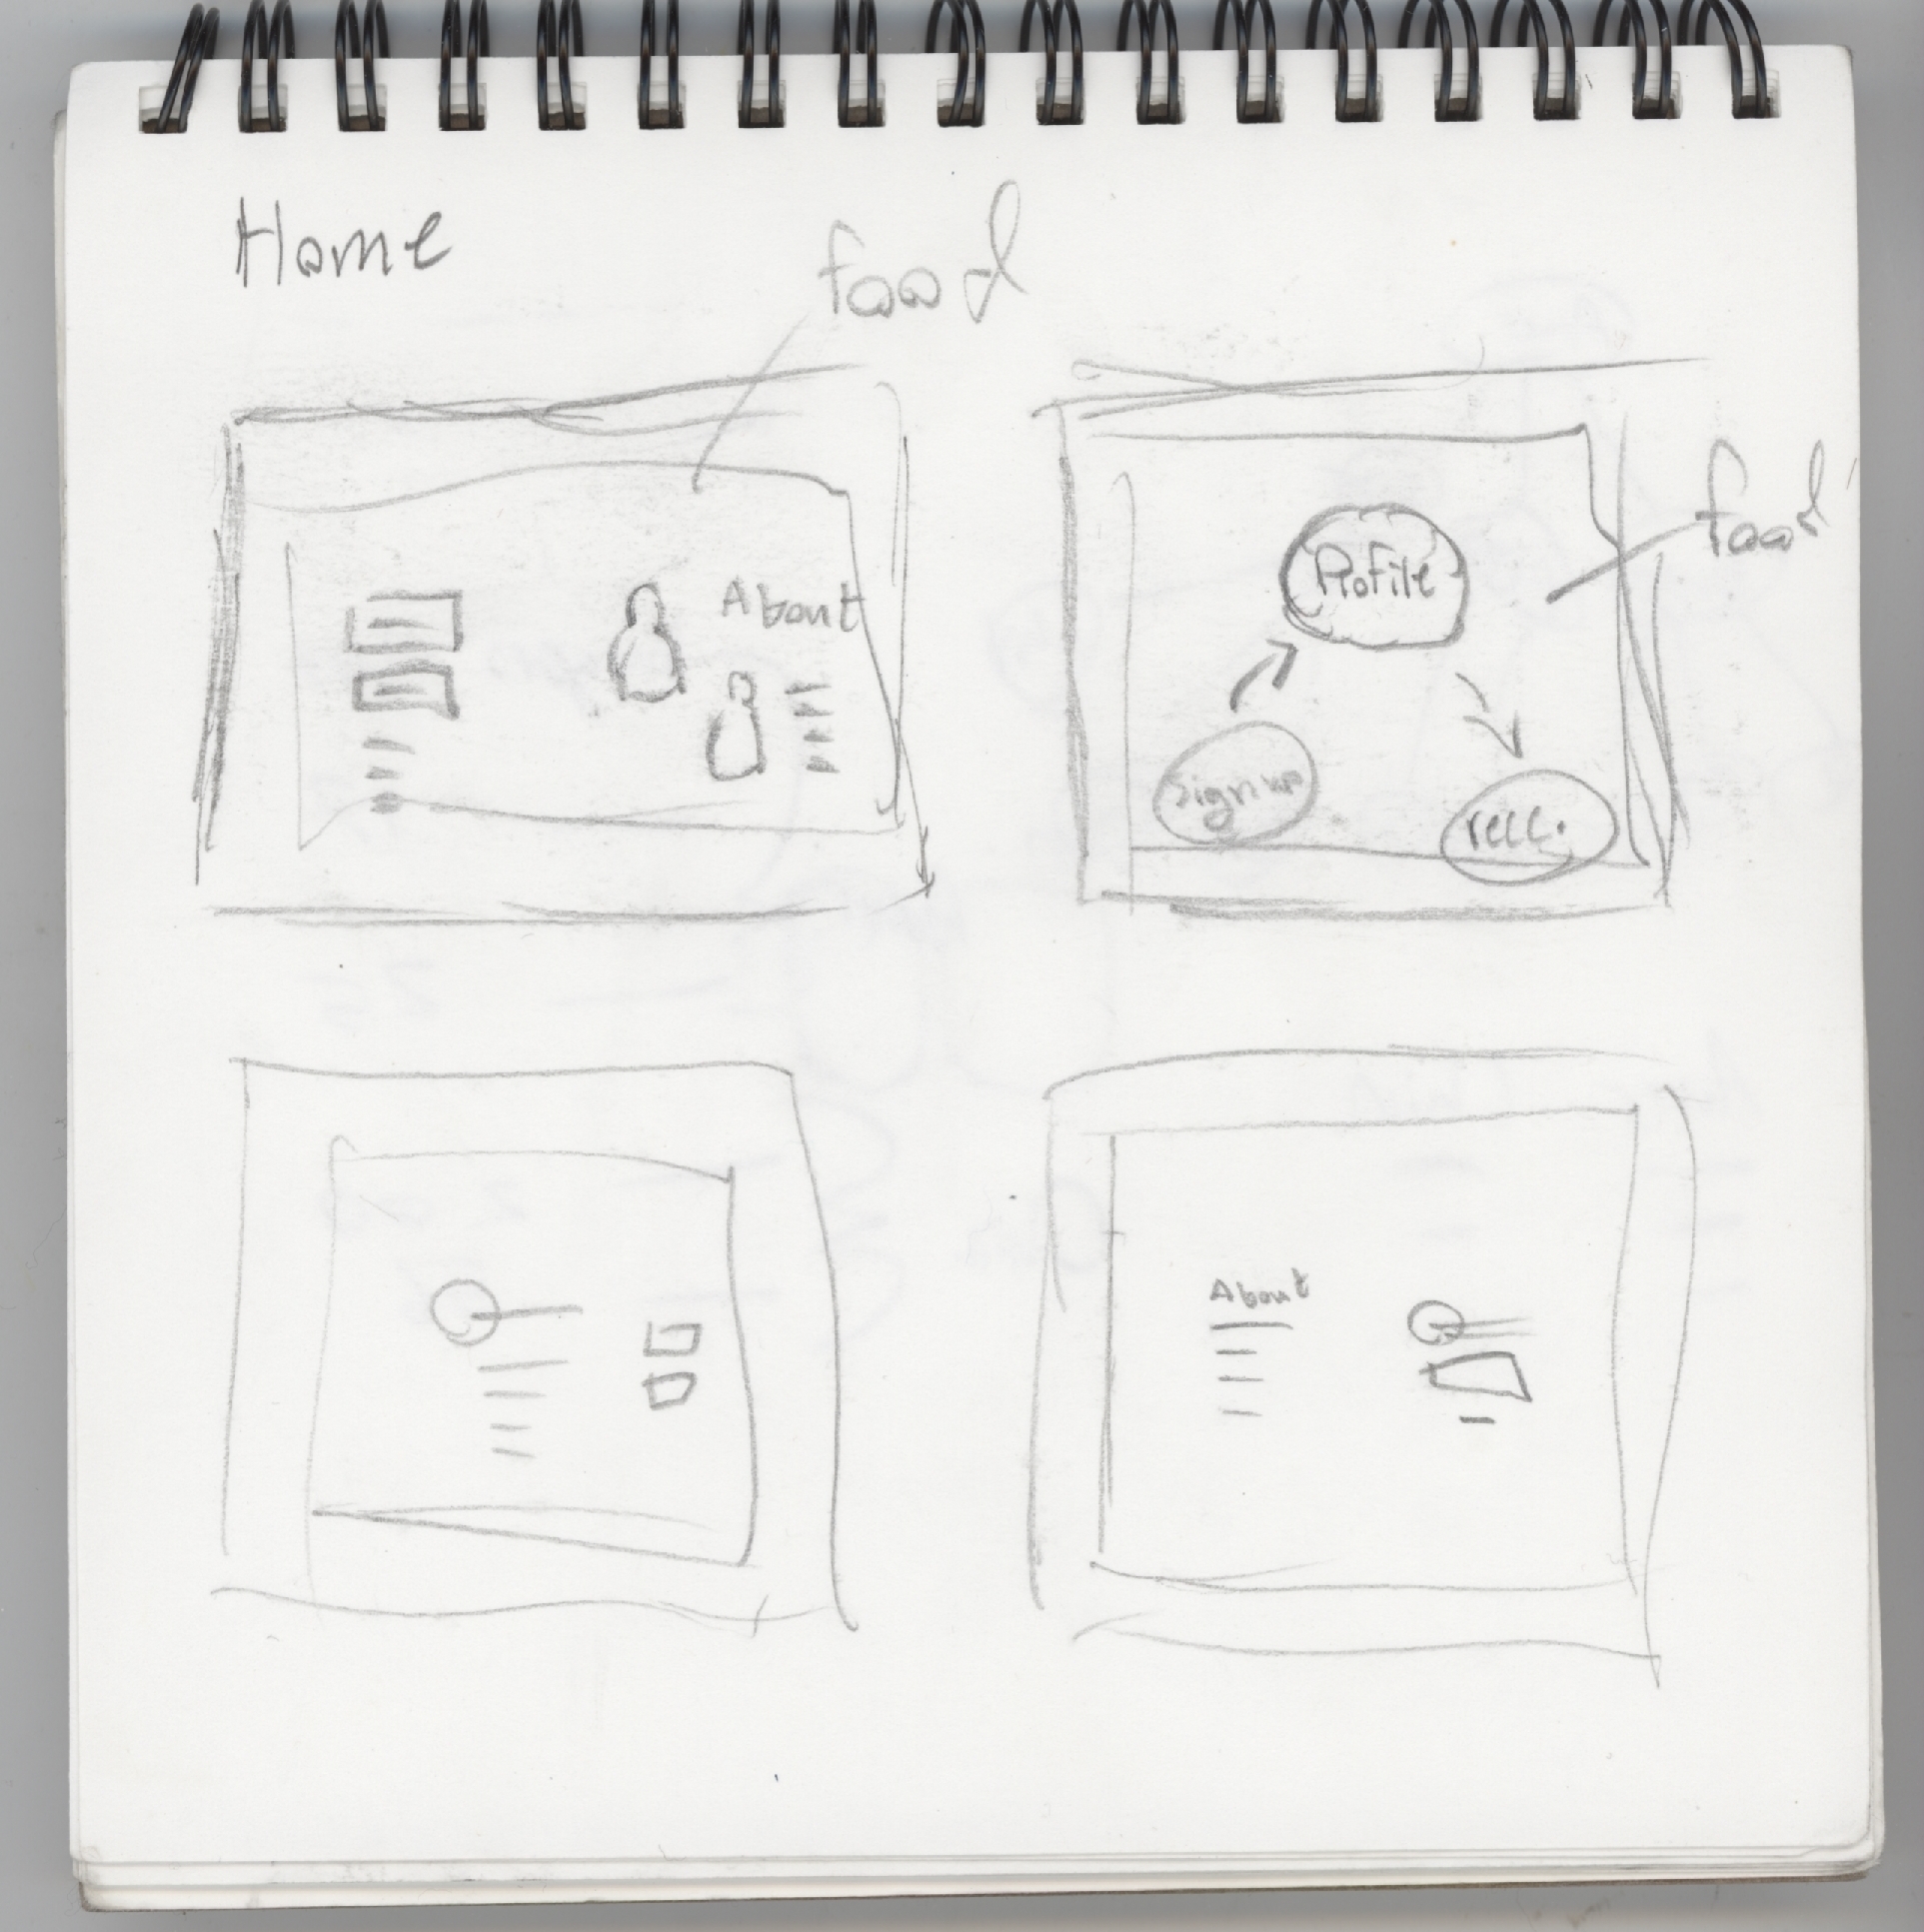 Home
food
About
food
Profile
Sign up
recc.
About